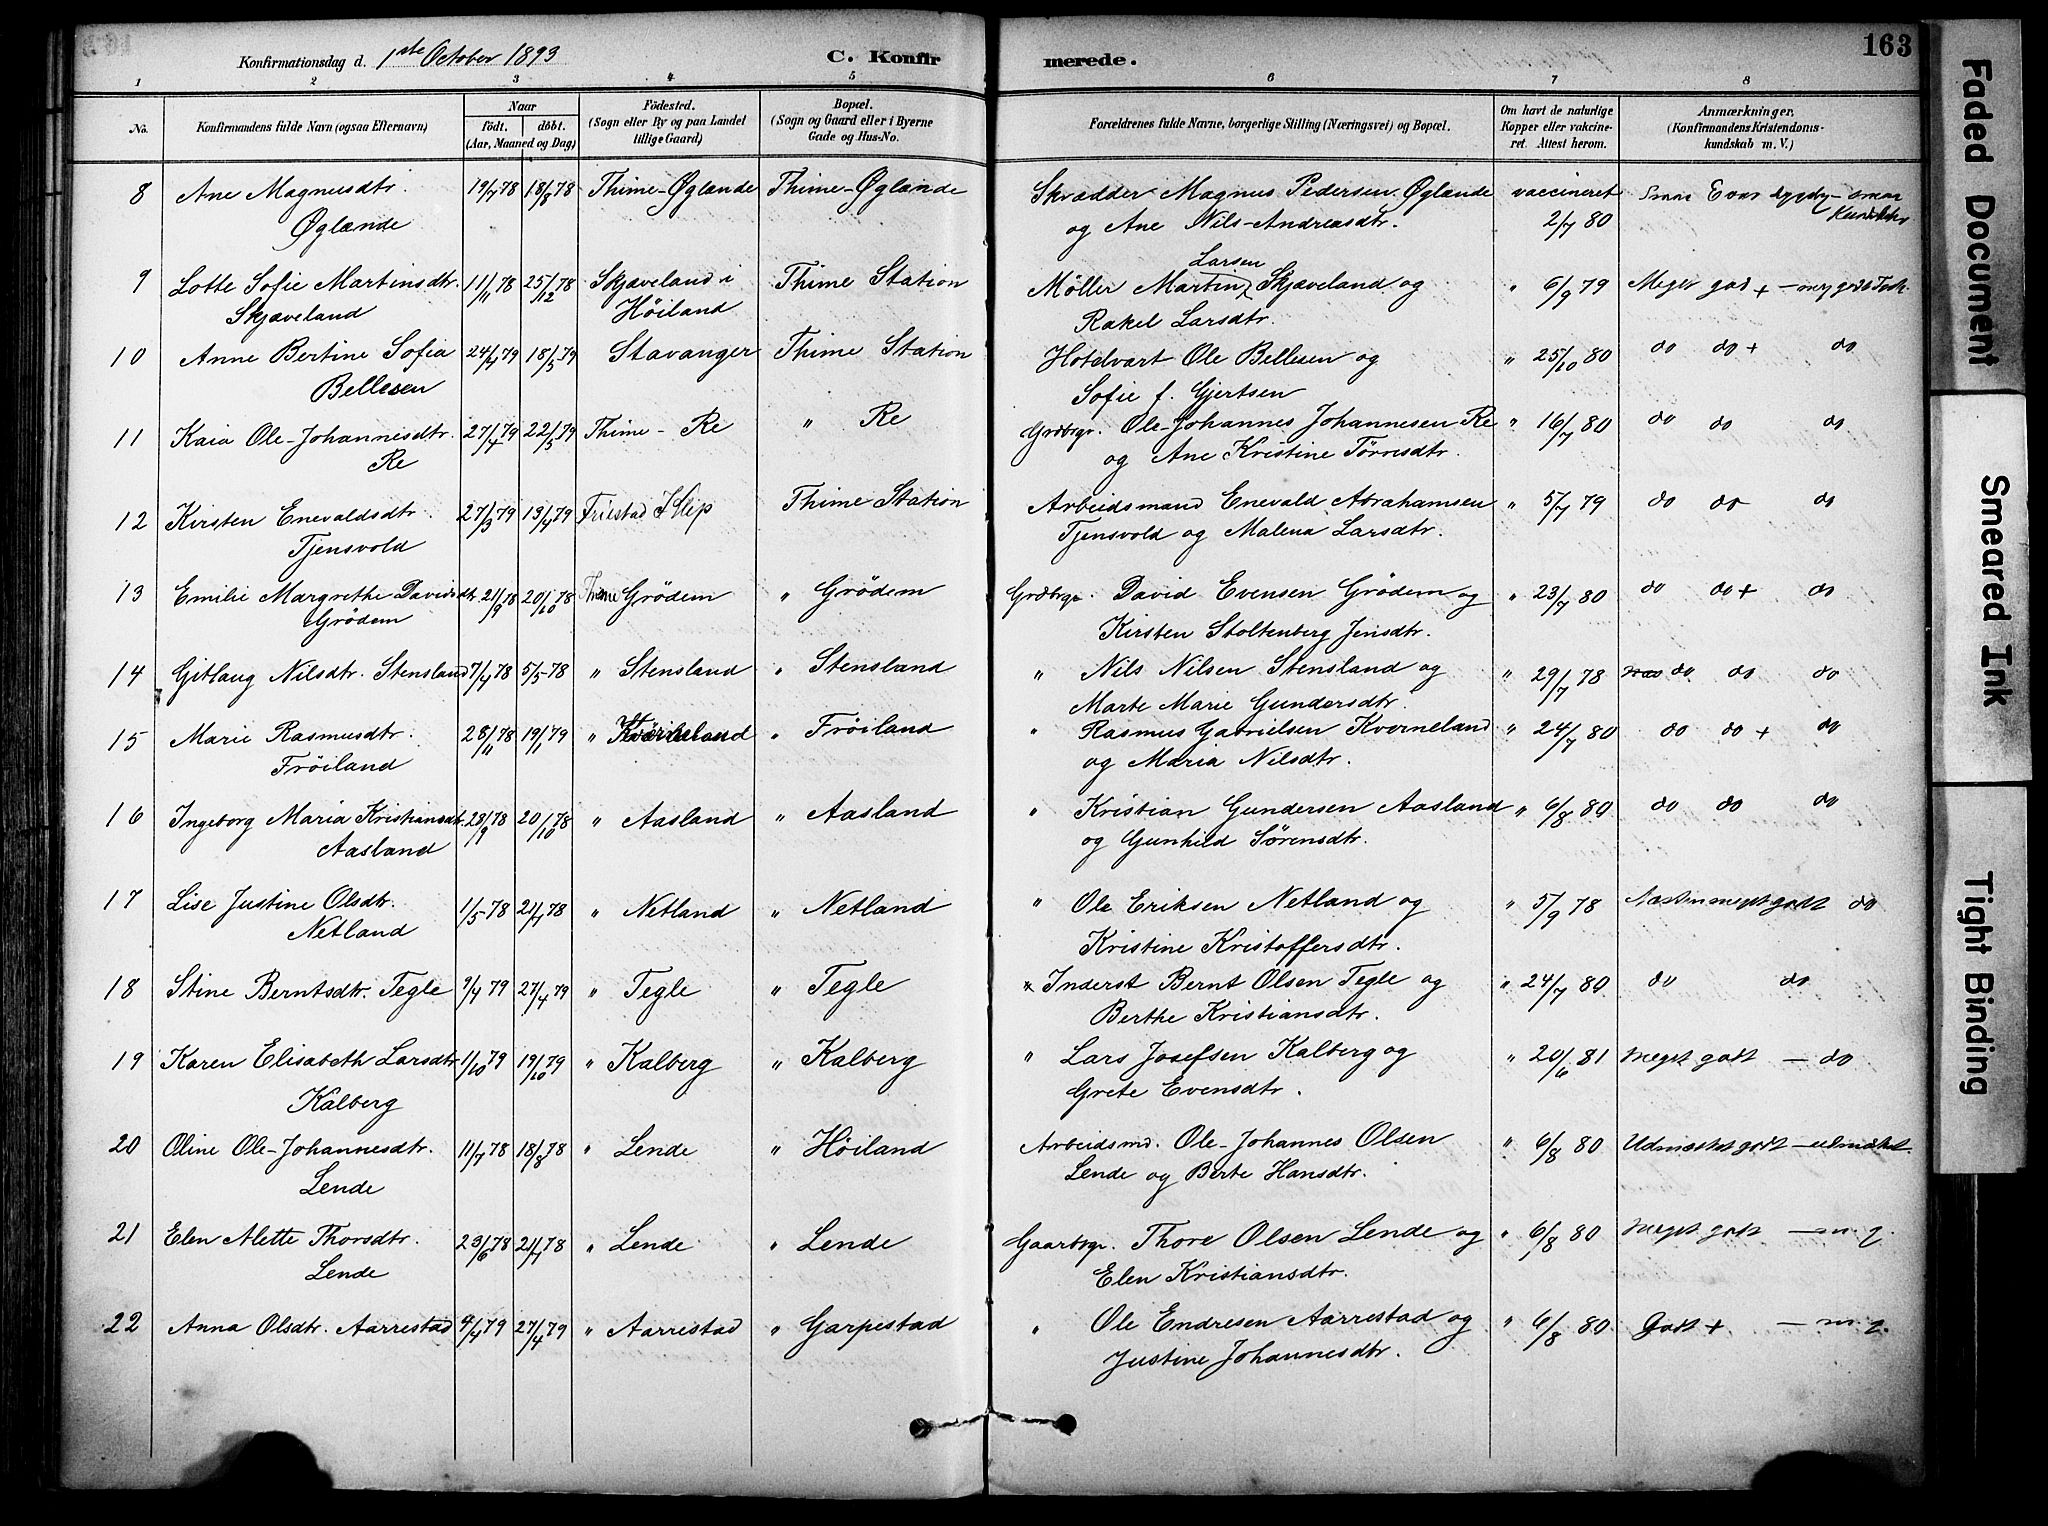 Konfirmationsdag d. 1ste October 1893
C. Konfirmerede.
163
1 2 3 4 5 6 7 8
No. Konfirmandens fulde Navn (ogsaa Efternavn) Naar født. døbt. (Aar, Maaned og Dag) Fødested. (Sogn eller By og paa Landet tillige Gaard) Bopæl. (Sogn og Gaard eller i Byerne Gade og Hus-No. Forældrenes fulde Navne, borgerlige Stilling (Næringsvei) og Bopæl. Om havt de naturlige Kopper eller vakcineret. Attest herom. Anmærkninger. (Konfirmandens Kristendomskundskab m. V.)
8 Ane Magnusdtr. 19/7 78 18/8 78 Thime-Øglænde Thime-Øglænde Skrædder Magnus Pedersen Øglænde vaccineret
Øglænde og Ane Nils-Andreasdtr. 2/7 80
9 Lotte Sofie Martinsdtr. 11/11 78 25/12 78 Skjæveland i Thime Station Møller Martin Larsen Skjæveland og " 6/9 79 Meget god +
Skjæveland Höiland Rakel Larsdtr.
10 Anne Bertine Sofia 24/4 79 18/5 79 Stavanger Thime Station Hotelvært Ole Bellesen og " 25/10 80 do do + do
Bellesen Sofie f. Gjertsen
11 Kaia Ole-Johannesdtr. 27/4 79 22/5 79 Thime - Re " Re Grdbrgr. Ole-Johannes Johannesen Re " 16/7 80 do do do
Re og Ane Kristine Tørresdtr.
12 Kirsten Enevaldsdtr. 27/3 79 13/4 79 Friestad Klep Thime Station Arbeidsmand Enevald Abrahamsen " 5/7 79 do do do
Tjensvold Tjensvold og Malena Larsdtr.
13 Emilie Margrethe Davidsdtr. 21/9 78 20/10 78 Thime Grödem " Grödem Grdbrgr. David Evensen Grödem og " 23/7 80 do do + do
Grödem Kirsten Stoltenberg Jensdtr.
14 Gitlaug Nilsdtr. Stensland 7/4 78 5/5 78 " Stensland " Stensland " Nils Nilsen Stensland og " 29/7 78 do do do
Marte Marie Gundersdtr.
15 Marie Rasmusdtr. 28/11 78 19/1 79 " " Fröiland " Rasmus Gabrielsen Kverneland " 24/7 80 do do + do
Fröiland og Maria Nilsdtr.
16 Ingeborg Maria Kristiansdtr. 28/9 78 20/10 78 " Aasland " Aasland " Kristian Gundersen Aasland " 6/8 80 do do do
Aasland og Gunhild Sørensdtr.
17 Lise Justine Olsdtr. 1/5 78 21/4 78 " Netland " Netland " Ole Eriksen Netland og " 5/9 78 Næsten meget godt do
Netland Kristine Kristoffersdtr.
18 Stine Berntsdtr. Tegle 9/4 79 27/4 79 " Tegle " Tegle Inderst Bernt Olsen Tegle og " 24/7 80 do do
Berthe Kristiansdtr.
19 Karen Elisabeth Larsdtr 1/10 79 19/10 79 " Kalberg " Kalberg " Lars Josefsen Kalberg og " 20/6 81 Meget godt - do
Kalberg Grete Evensdtr.
20 Oline Ole-Johannesdtr. 11/7 78 18/8 78 " Lende " Höiland Arbeidsmd. Ole-Johannes Olsen " 6/8 80 Udmærket godt - udmærket.
Lende Lende og Berte Hansdtr.
21 Elen Alette Thorsdtr. 23/6 78 21/7 78 " Lende " Lende Gaardbrgr. Thore Olsen Lende og " 6/8 80 Meget godt - m g.
Lende Elen Kristiansdtr.
22 Anna Olsdtr. Aarrestad 4/4 79 27/4 79 " Aarrestad " Garpestad " Ole Endresen Aarrestad og " 6/8 80 Godt + - m g.
Justine Johannesdtr.
Faded Document
Smeared Ink
Tight Binding